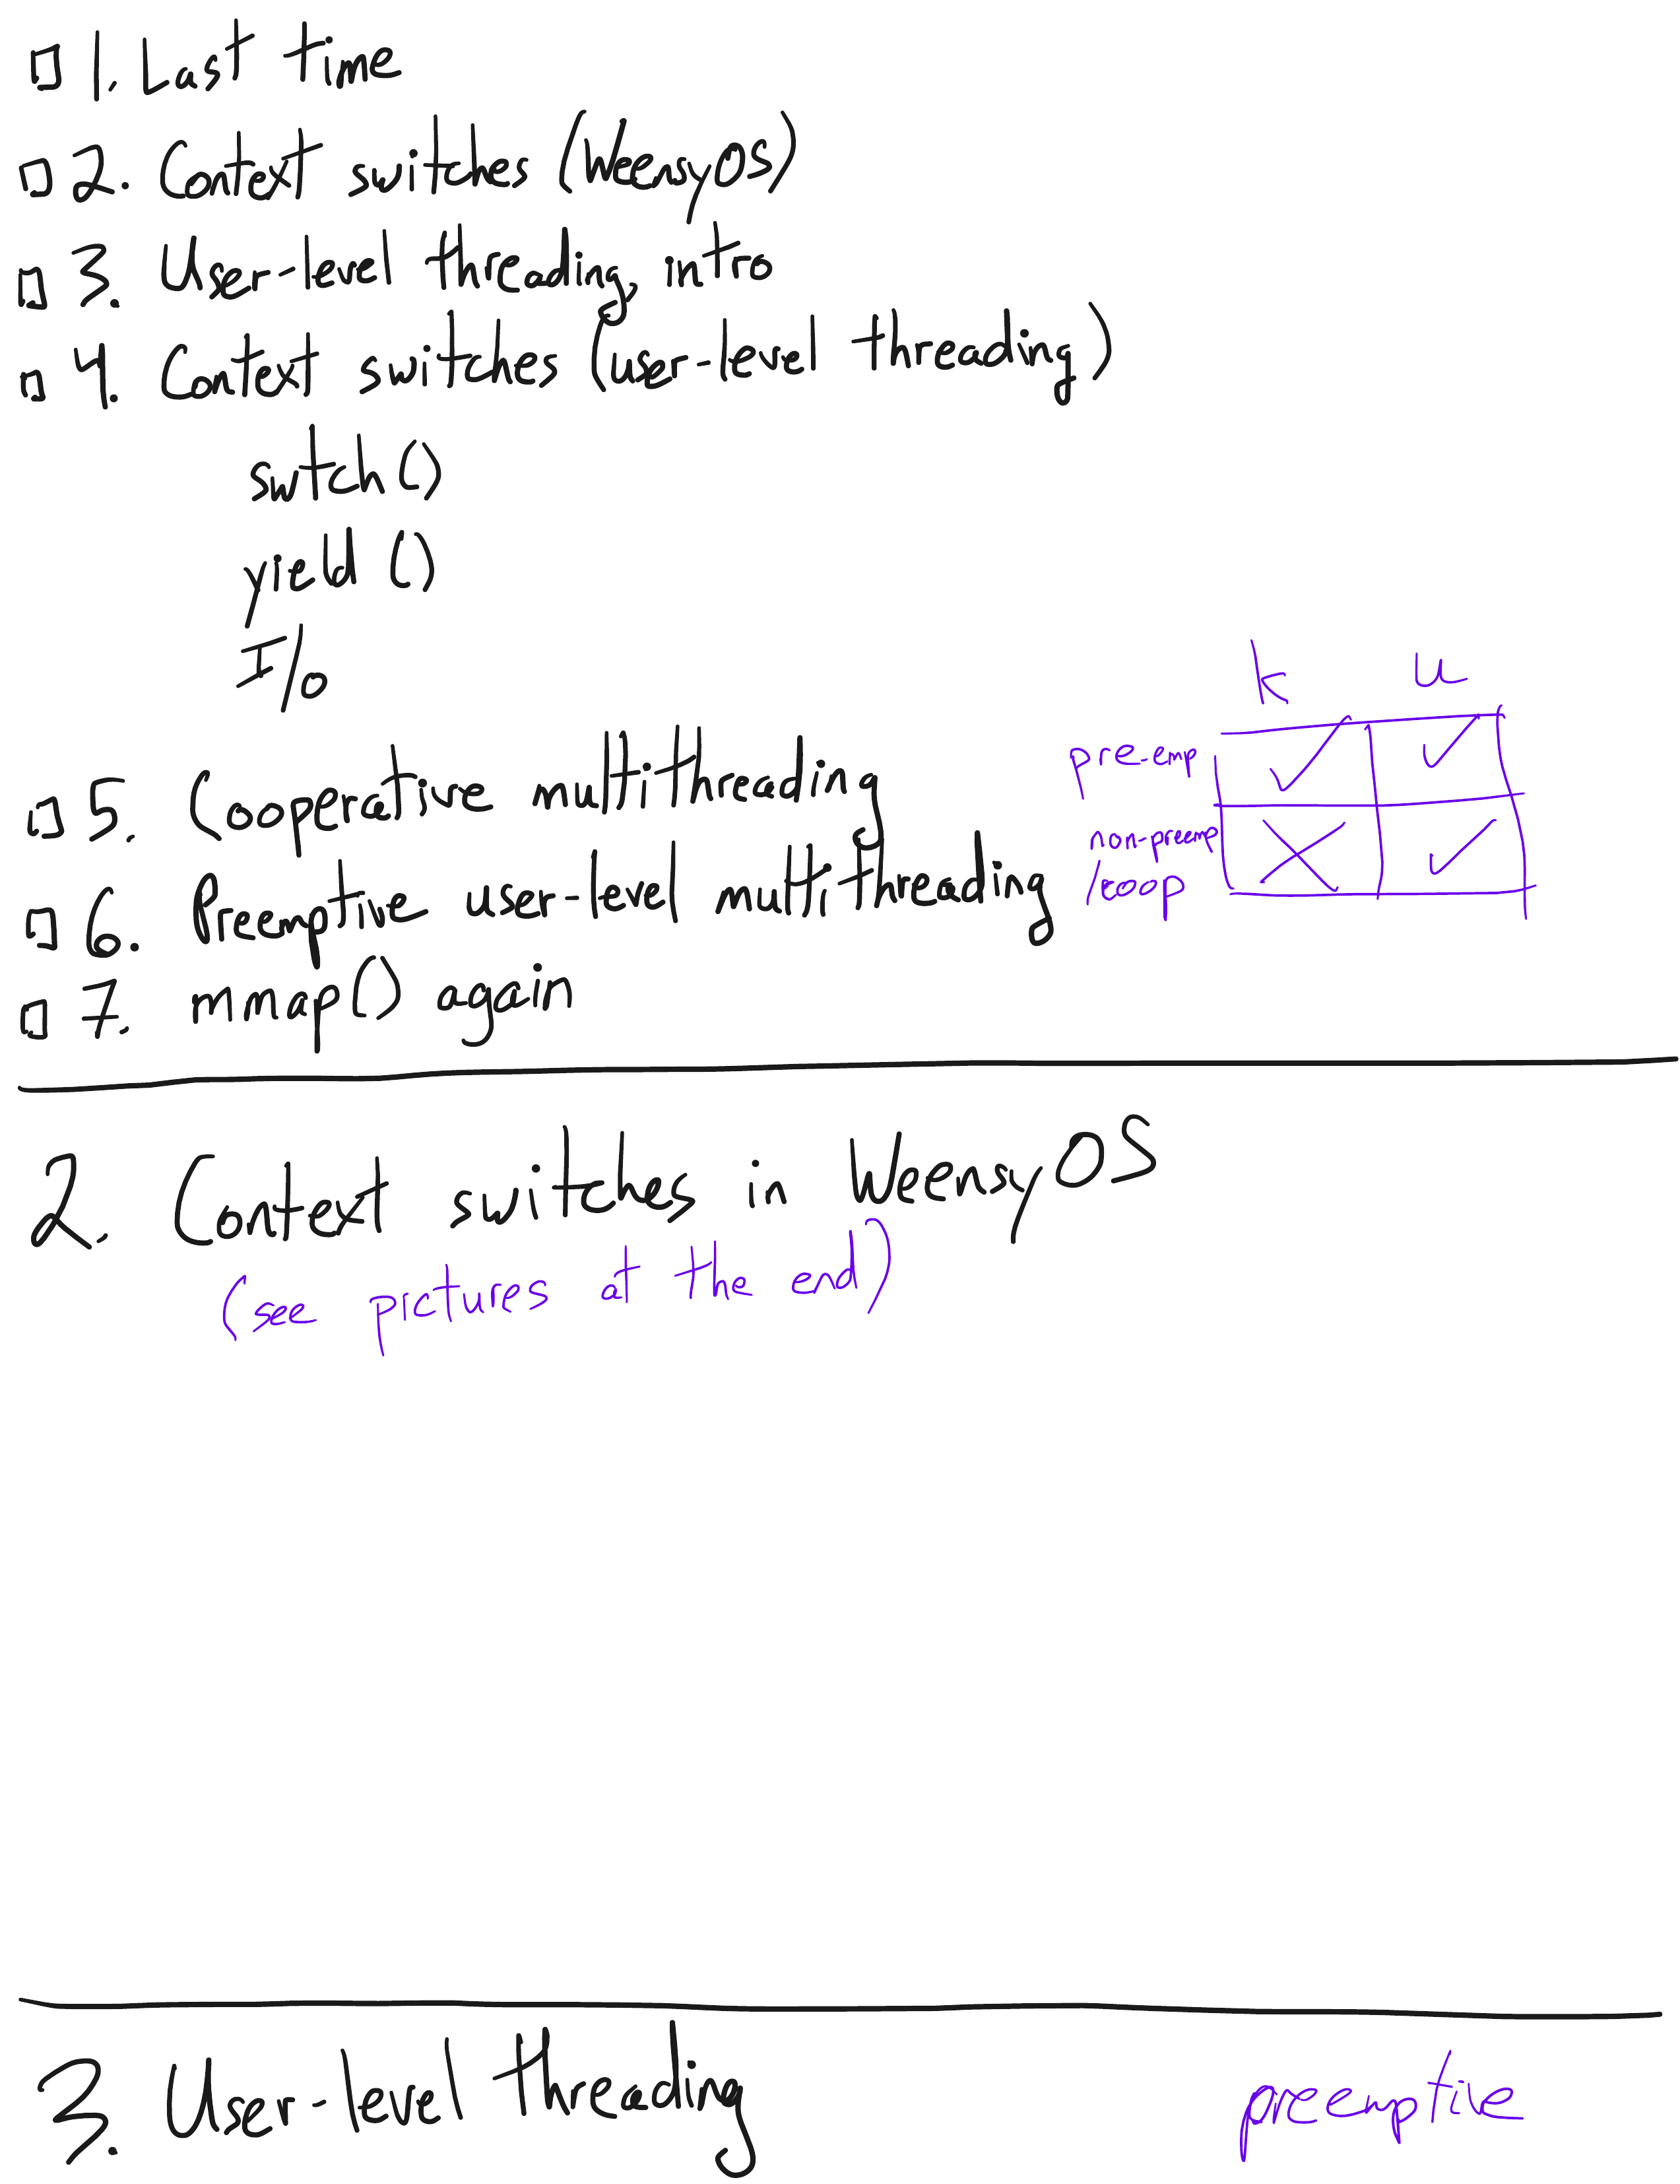 1. Last time
2. Context switches (WeensyOS)
3. User-level threading, intro
4. Context switches (user-level threading)
swtch()
yield()
I/O
k u
pre-emp
non-preemp
/coop
5. Cooperative multithreading
6. Preemptive user-level multithreading
7. mmap() again
2. Context switches in WeensyOS
(see pictures at the end)
3. User-level threading
preemptive